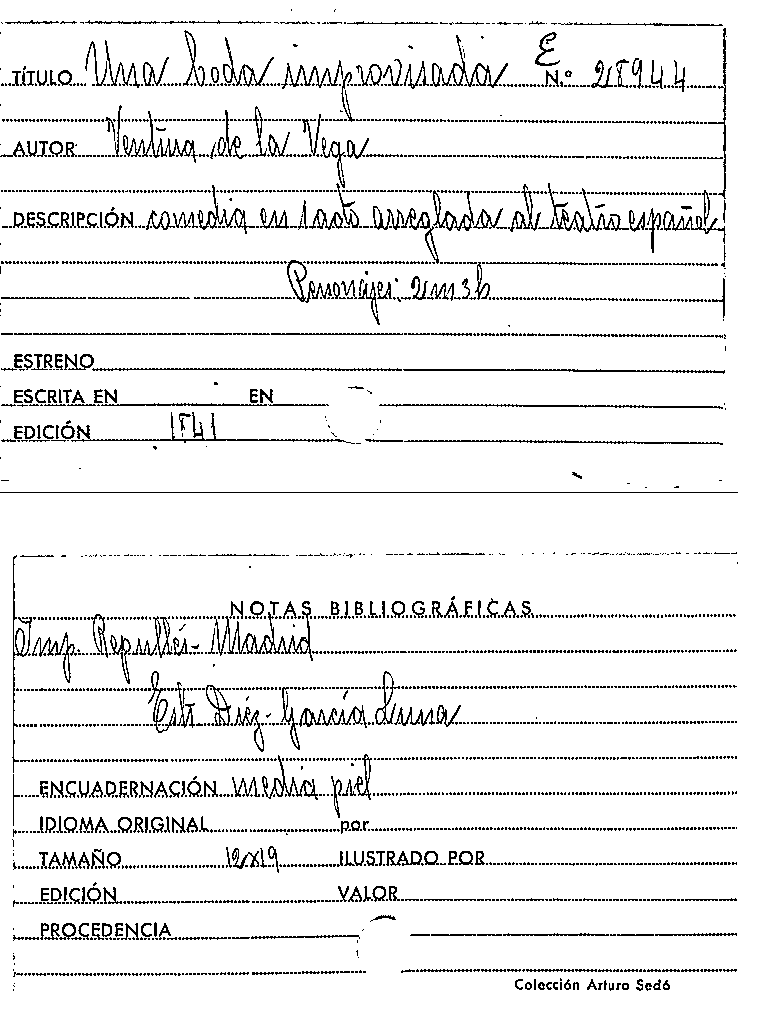 E
TÍTULO Una boda improvisada N.º 28944
AUTOR Ventura de la Vega
DESCRIPCIÓN comedia en 1 acto arreglada al teatro español
Personajes: 2m 3h
ESTRENO
ESCRITA EN EN
EDICIÓN 1841
NOTAS BIBLIOGRÁFICAS
Imp. Repullés - Madrid
Estr Díez - García Luna
ENCUADERNACIÓN media piel
IDIOMA ORIGINAL por
TAMAÑO 12x19 ILUSTRADO POR
EDICIÓN VALOR
PROCEDENCIA
Colección Arturo Sedó